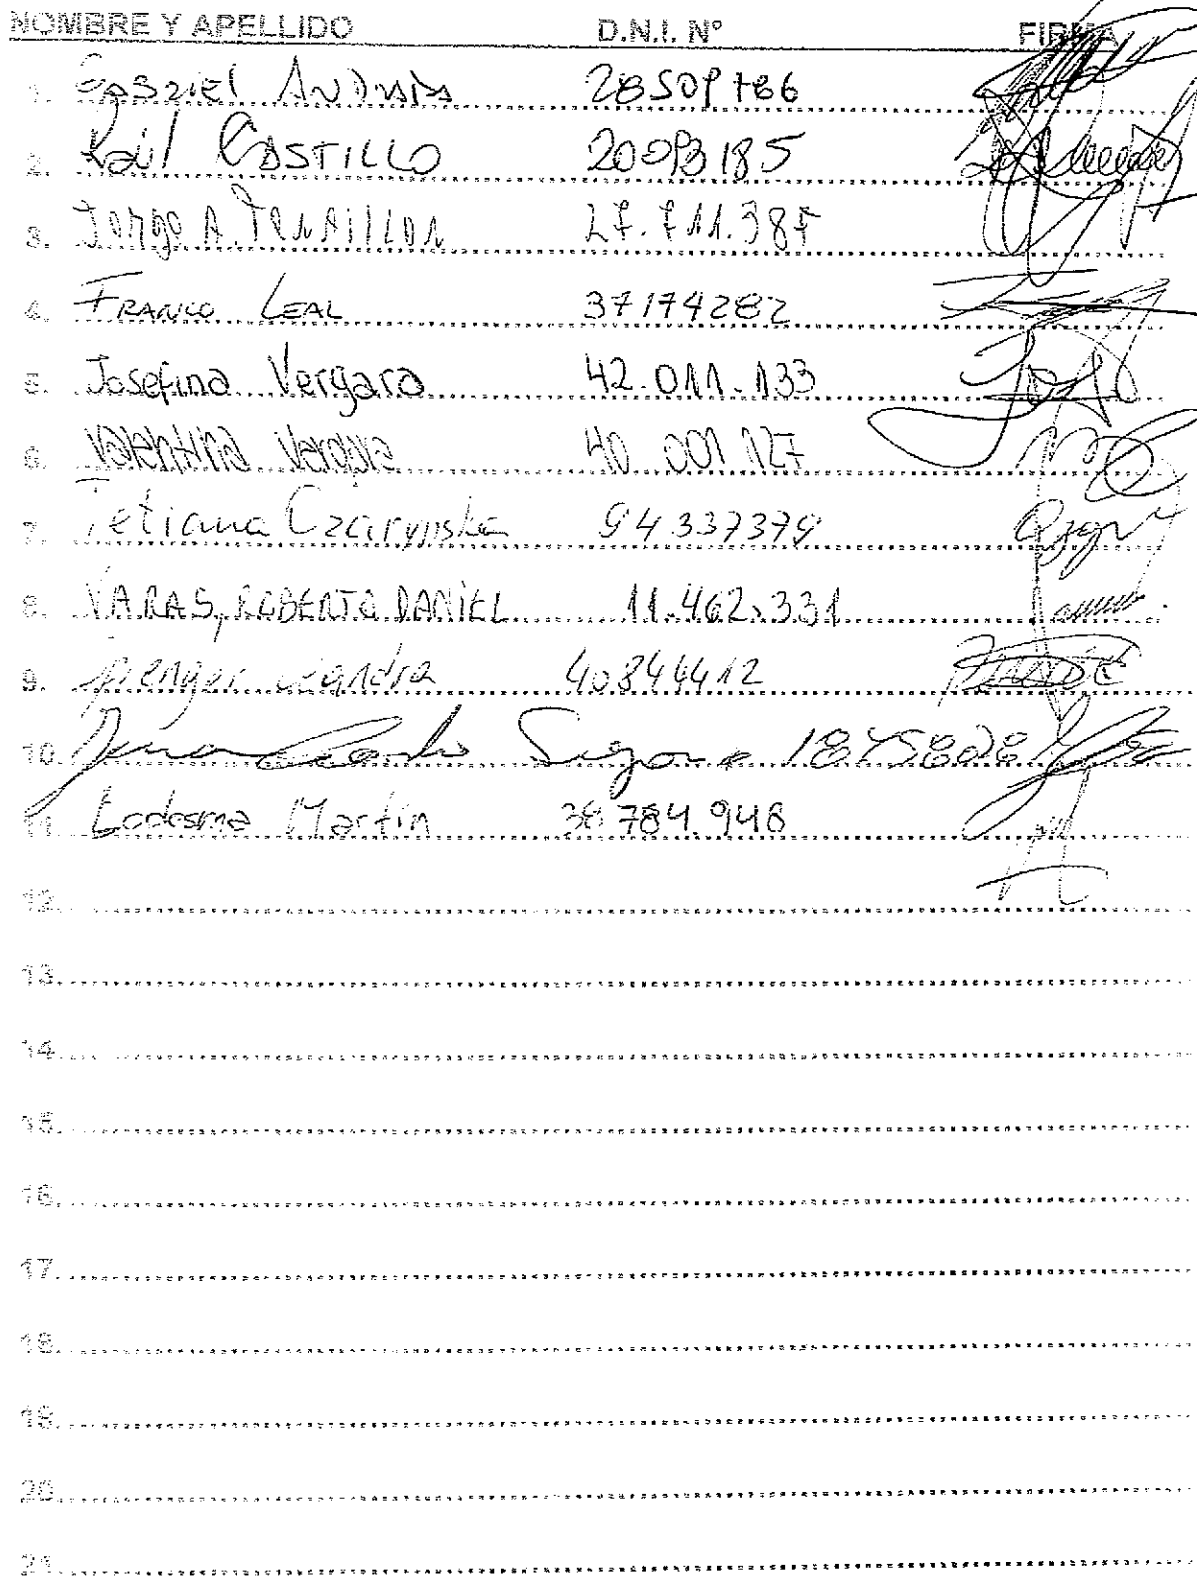 NOMBRE Y APELLIDO D.N.I. Nº FIRMA
1. Gabriel Andrada 28509786
2. Raúl Castillo 20093185
3. Jorge A. 27.711.387
4. Franco Leal 37174282
5. Josefina Vergara 42.011.133
6. Valentina Vergara 40 001 127
7. Tetiana Czarynska 94337379
8. VARAS, ROBERTO DANIEL 11.462.331
9. 40844412
10. Juan Carlos
11. Ledesma Martin 38 784 948
12.
13.
14.
15.
16.
17.
18.
19.
20.
21.